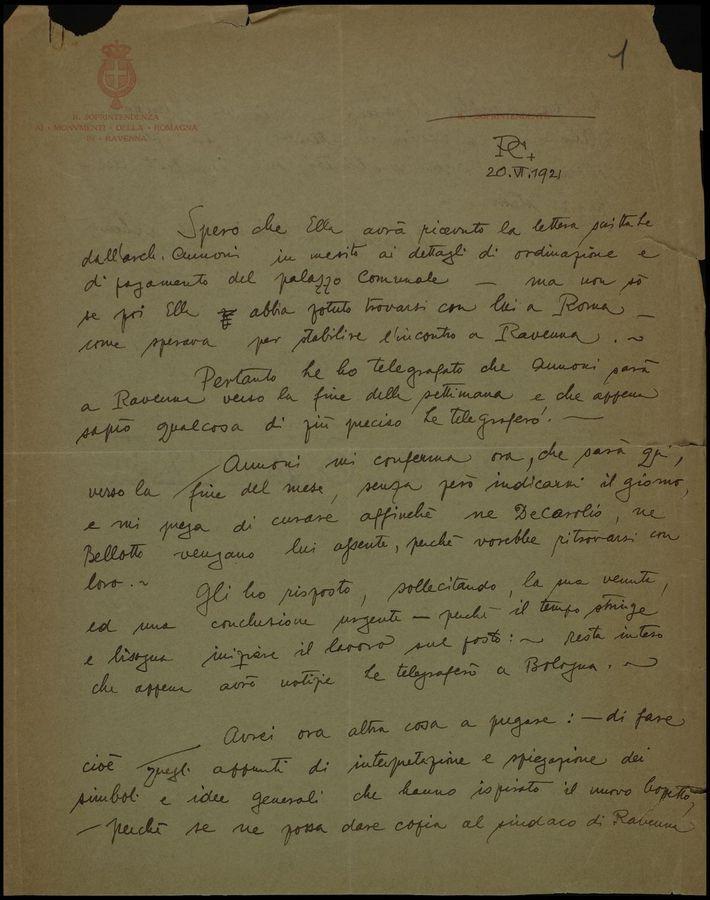 1
R. SOPRINTENDENZA
AI • MONVMENTI • DELLA • ROMAGNA
IN • RAVENNA
IL SOPRINTENDENTE
20.VI.1921
Spero che Ella avrà ricevuto la lettera scritta Le
dall'arch. Annoni in merito ai dettagli di ordinazione e
di pagamento del palazzo Comunale — ma non sò
se poi Ella abbia potuto trovarsi con lui a Roma —
come sperava per stabilire l'incontro a Ravenna . ~
Pertanto Le ho telegrafato che Annoni sarà
a Ravenna verso la fine della settimana e che appena
saprò qualcosa di più preciso Le telegraferò. —
Annoni mi conferma ora, che sarà qui,
verso la fine del mese, senza però indicarmi il giorno,
e mi prega di curare affinché ne DeCarolis, ne
Bellotto vengano lui assente, perché vorrebbe ritrovarsi con
loro . ~ Gli ho risposto, sollecitando, la sua venuta,
ed una conclusione urgente — perché il tempo stringe
e bisogna iniziare il lavoro sul posto : ~ resta inteso
che appena avrò notizie Le telegraferò a Bologna . ~
Avrei ora altra cosa a pregare : — di fare
cioè quegli appunti di interpretazione e spiegazione dei
simboli e idee generali che hanno ispirato il nuovo bozzetto,
— perché se ne possa dare copia al sindaco di Ravenna